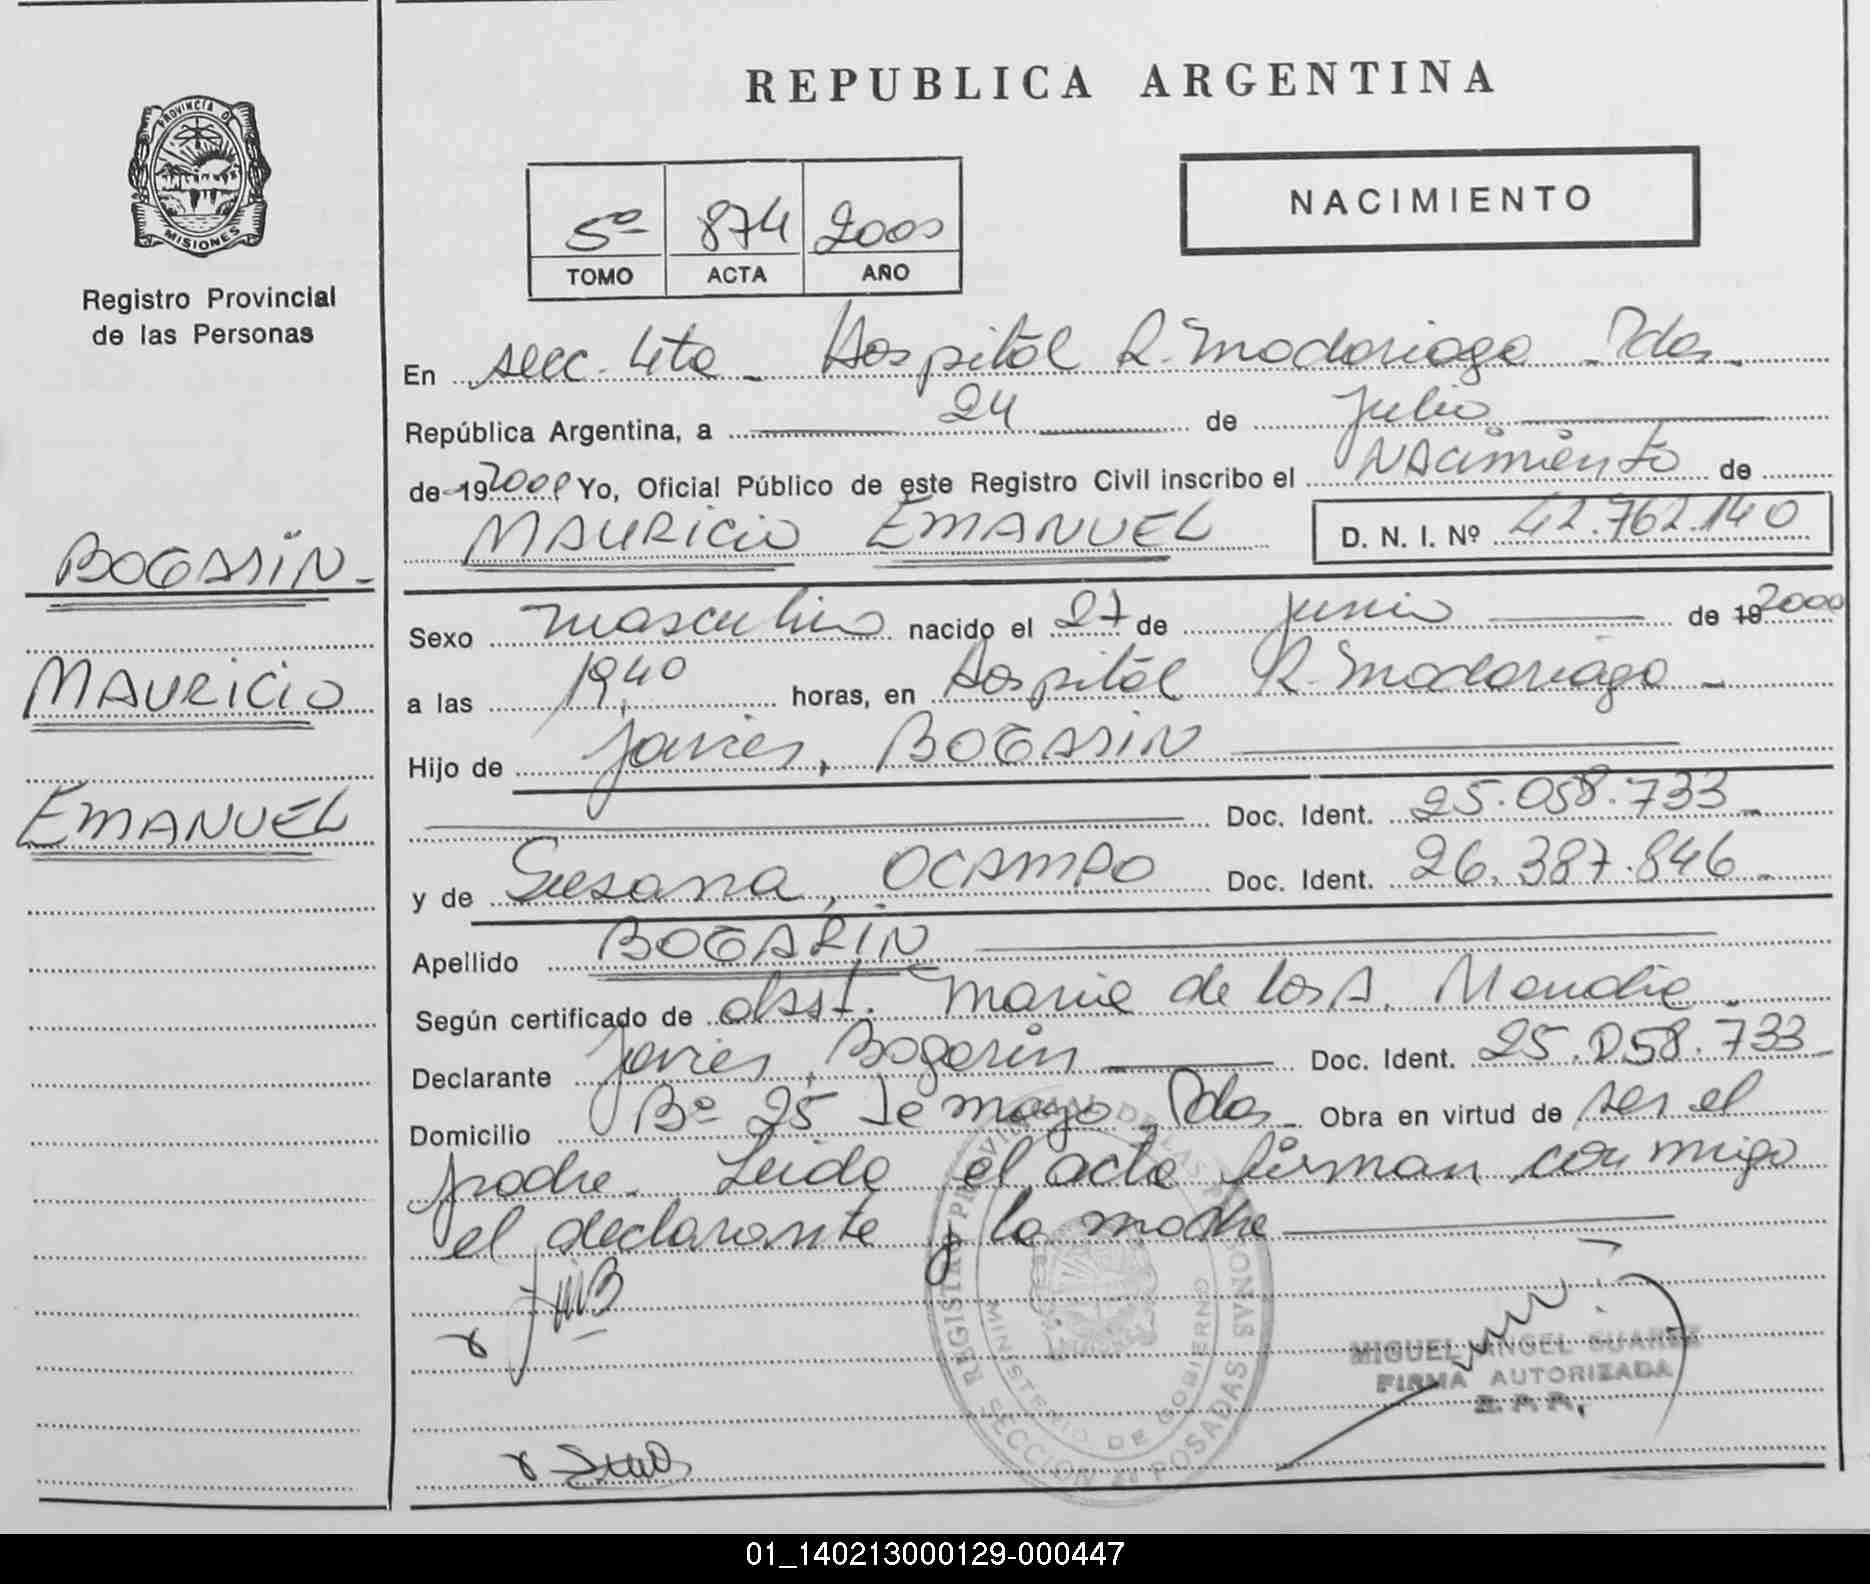 REPUBLICA ARGENTINA
PROVINCIA DE
MISIONES
Registro Provincial
de las Personas
5º 874 2000
TOMO ACTA AÑO
NACIMIENTO
En secc. 4ta - Hospital R. Madariaga - Pdas -
República Argentina, a 24 de Julio
de 19 2000 Yo, Oficial Público de este Registro Civil inscribo el NAcimienTo de
MAURICIO EMANUEL D. N. I. Nº 42.762.140
BOGARIN -
MAURICIO
EMANUEL
Sexo masculino nacido el 27 de junio de 19 2000
a las 19,40 horas, en Hospital R. Madariaga -
Hijo de Javier, BOGARIN
Doc. Ident. 25.058.733 -
y de Susana, OCAMPO Doc. Ident. 26.387.846 -
Apellido BOGARÍN
Según certificado de obst. Maria de los A.
Declarante Javier, Bogarin Doc. Ident. 25.058.733 -
Domicilio Bº 25 de mayo - Pdas - Obra en virtud de ser el
padre - Leida el acta firman conmigo
el declarante y la madre
REGISTRO PROVINCIAL DE LAS PERSONAS
MINISTERIO DE GOBIERNO
SECCION 4ª POSADAS
MIGUEL ANGEL SUAREZ
FIRMA AUTORIZADA
01_140213000129-000447